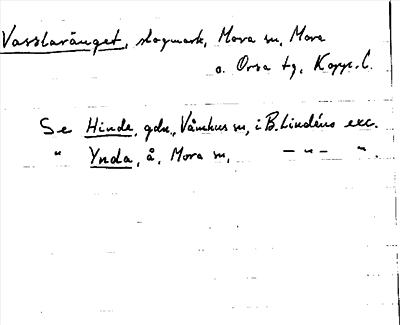 Vasslaränget, slogmark, Mora sn, Mora
o. Orsa tg, Kopp. l.
Se Hinde, gdn., Våmhus sn, i B. Lindéns exc.
" Ynda, å, Mora sn, — " — " .